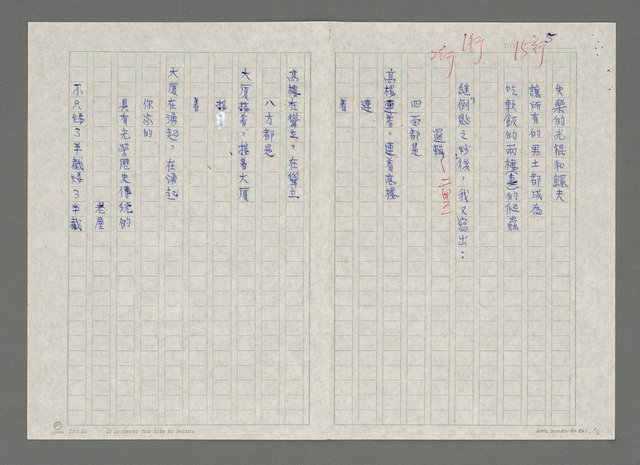 NO.
15行
5
1行
2行
失樂的光棍和鰥夫
讓所有的男士都成為
吃軟飯的兩棲(畫)的爬蟲
繼「倒點之妙」後，我又寫出：
邏輯
四面都是
高樓連着，連着高樓
連
着
高樓在聳立，在聳立
八方都是
大廈接着，接着大廈
接
着
大廈在湧起，在湧起
你家的
具有光榮歷史傳統的
老屋
不只矮了半截矮了半截
20×25
It is never too late to learn.